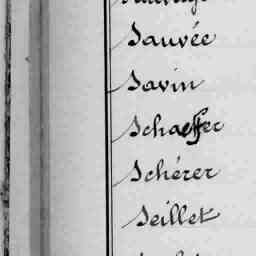 Sauvée
Savin
Schaeffer
Schérer
Seillet